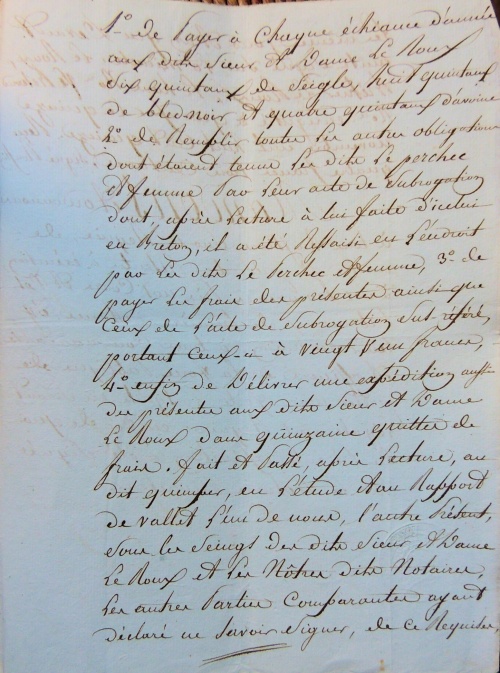 1º. de payer à chaque échéance d'année
aux dits Sieur et Dame Le Roux
Six quintaux de Seigle, huit quintaux
de bled-noir et quatre quintaux d'avoine
2º. de Remplir toutes les autres obligations
dont étaient tenus les dits Le perchec
et femme par leur acte de Subrogation
dont, après Lecture à lui faite d'icelui
en Breton, il a été Ressaisi en L'endroit
par les dits Le Perchec et femme, 3º. de
payer les frais des présentes ainsi que
ceux de L'acte de Subrogation Sus-référé,
portant ceux-ci à vingt un francs,
4º. enfin de Délivrer une expédition aussi
des présentes aux dits Sieur et Dame
Le Roux dans quinzaine quittes de
frais. fait et Passé, après Lecture, au
dit quimper, en L'étude et au Rapport
de vallet L'un de nous, l'autre Présent,
Sous les Seings des dits Sieur et Dame
Le Roux et les Nôtres dits Notaires,
Les autres Parties Comparantes ayant
déclaré ne Savoir Signer, de ce Requises,